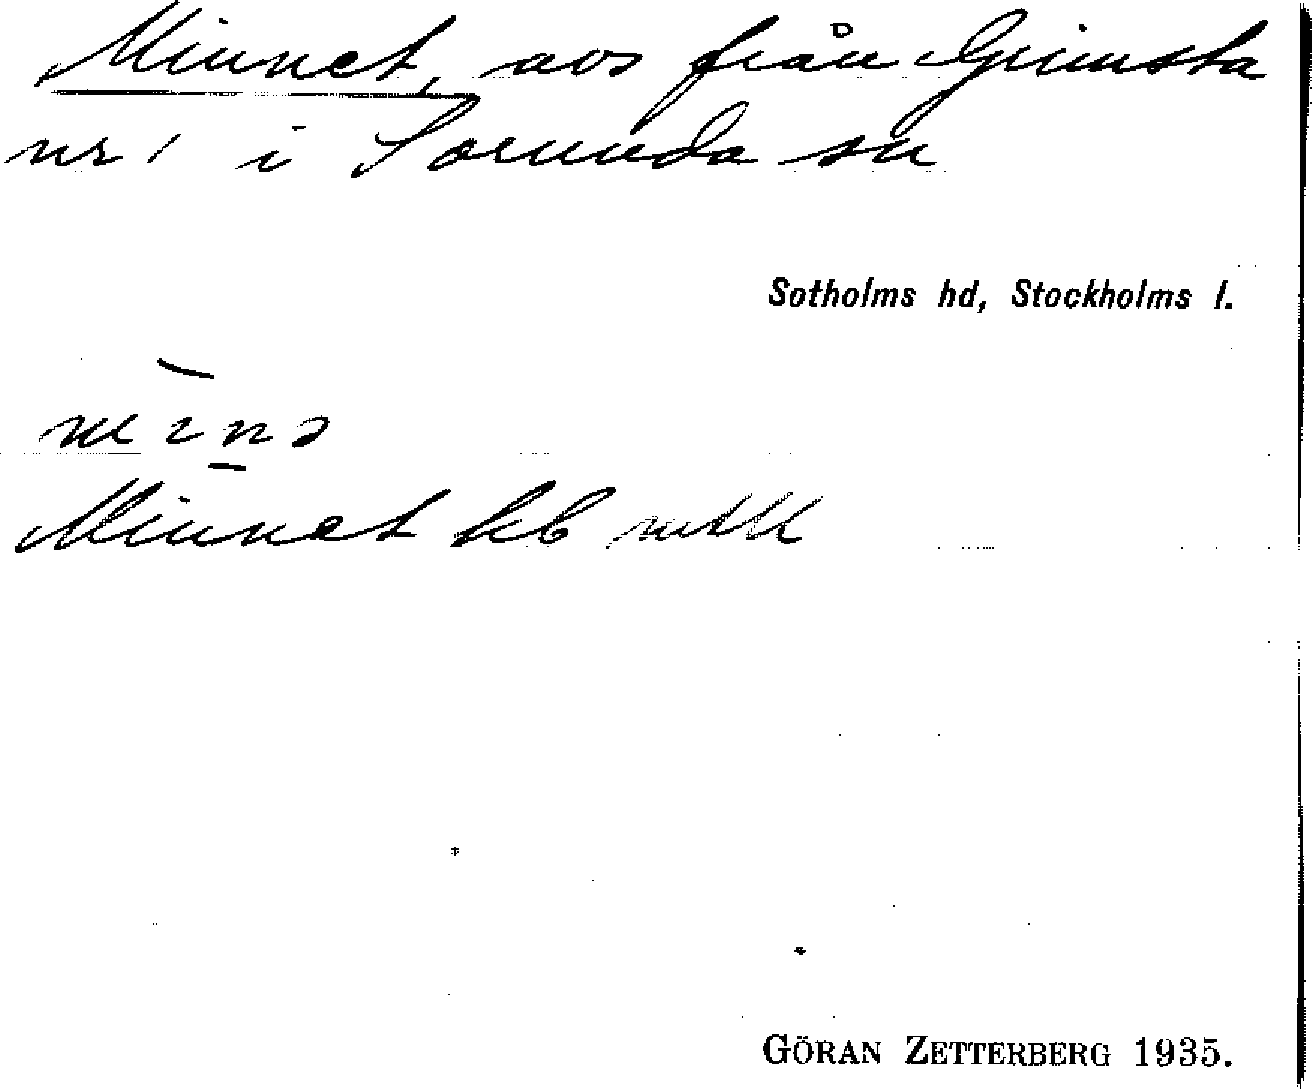 Minnet, avs från Grimsta
nr 1 i Sorunda sn
Sotholms hd, Stockholms l.
Minnet
GÖRAN ZETTERBERG 1935.